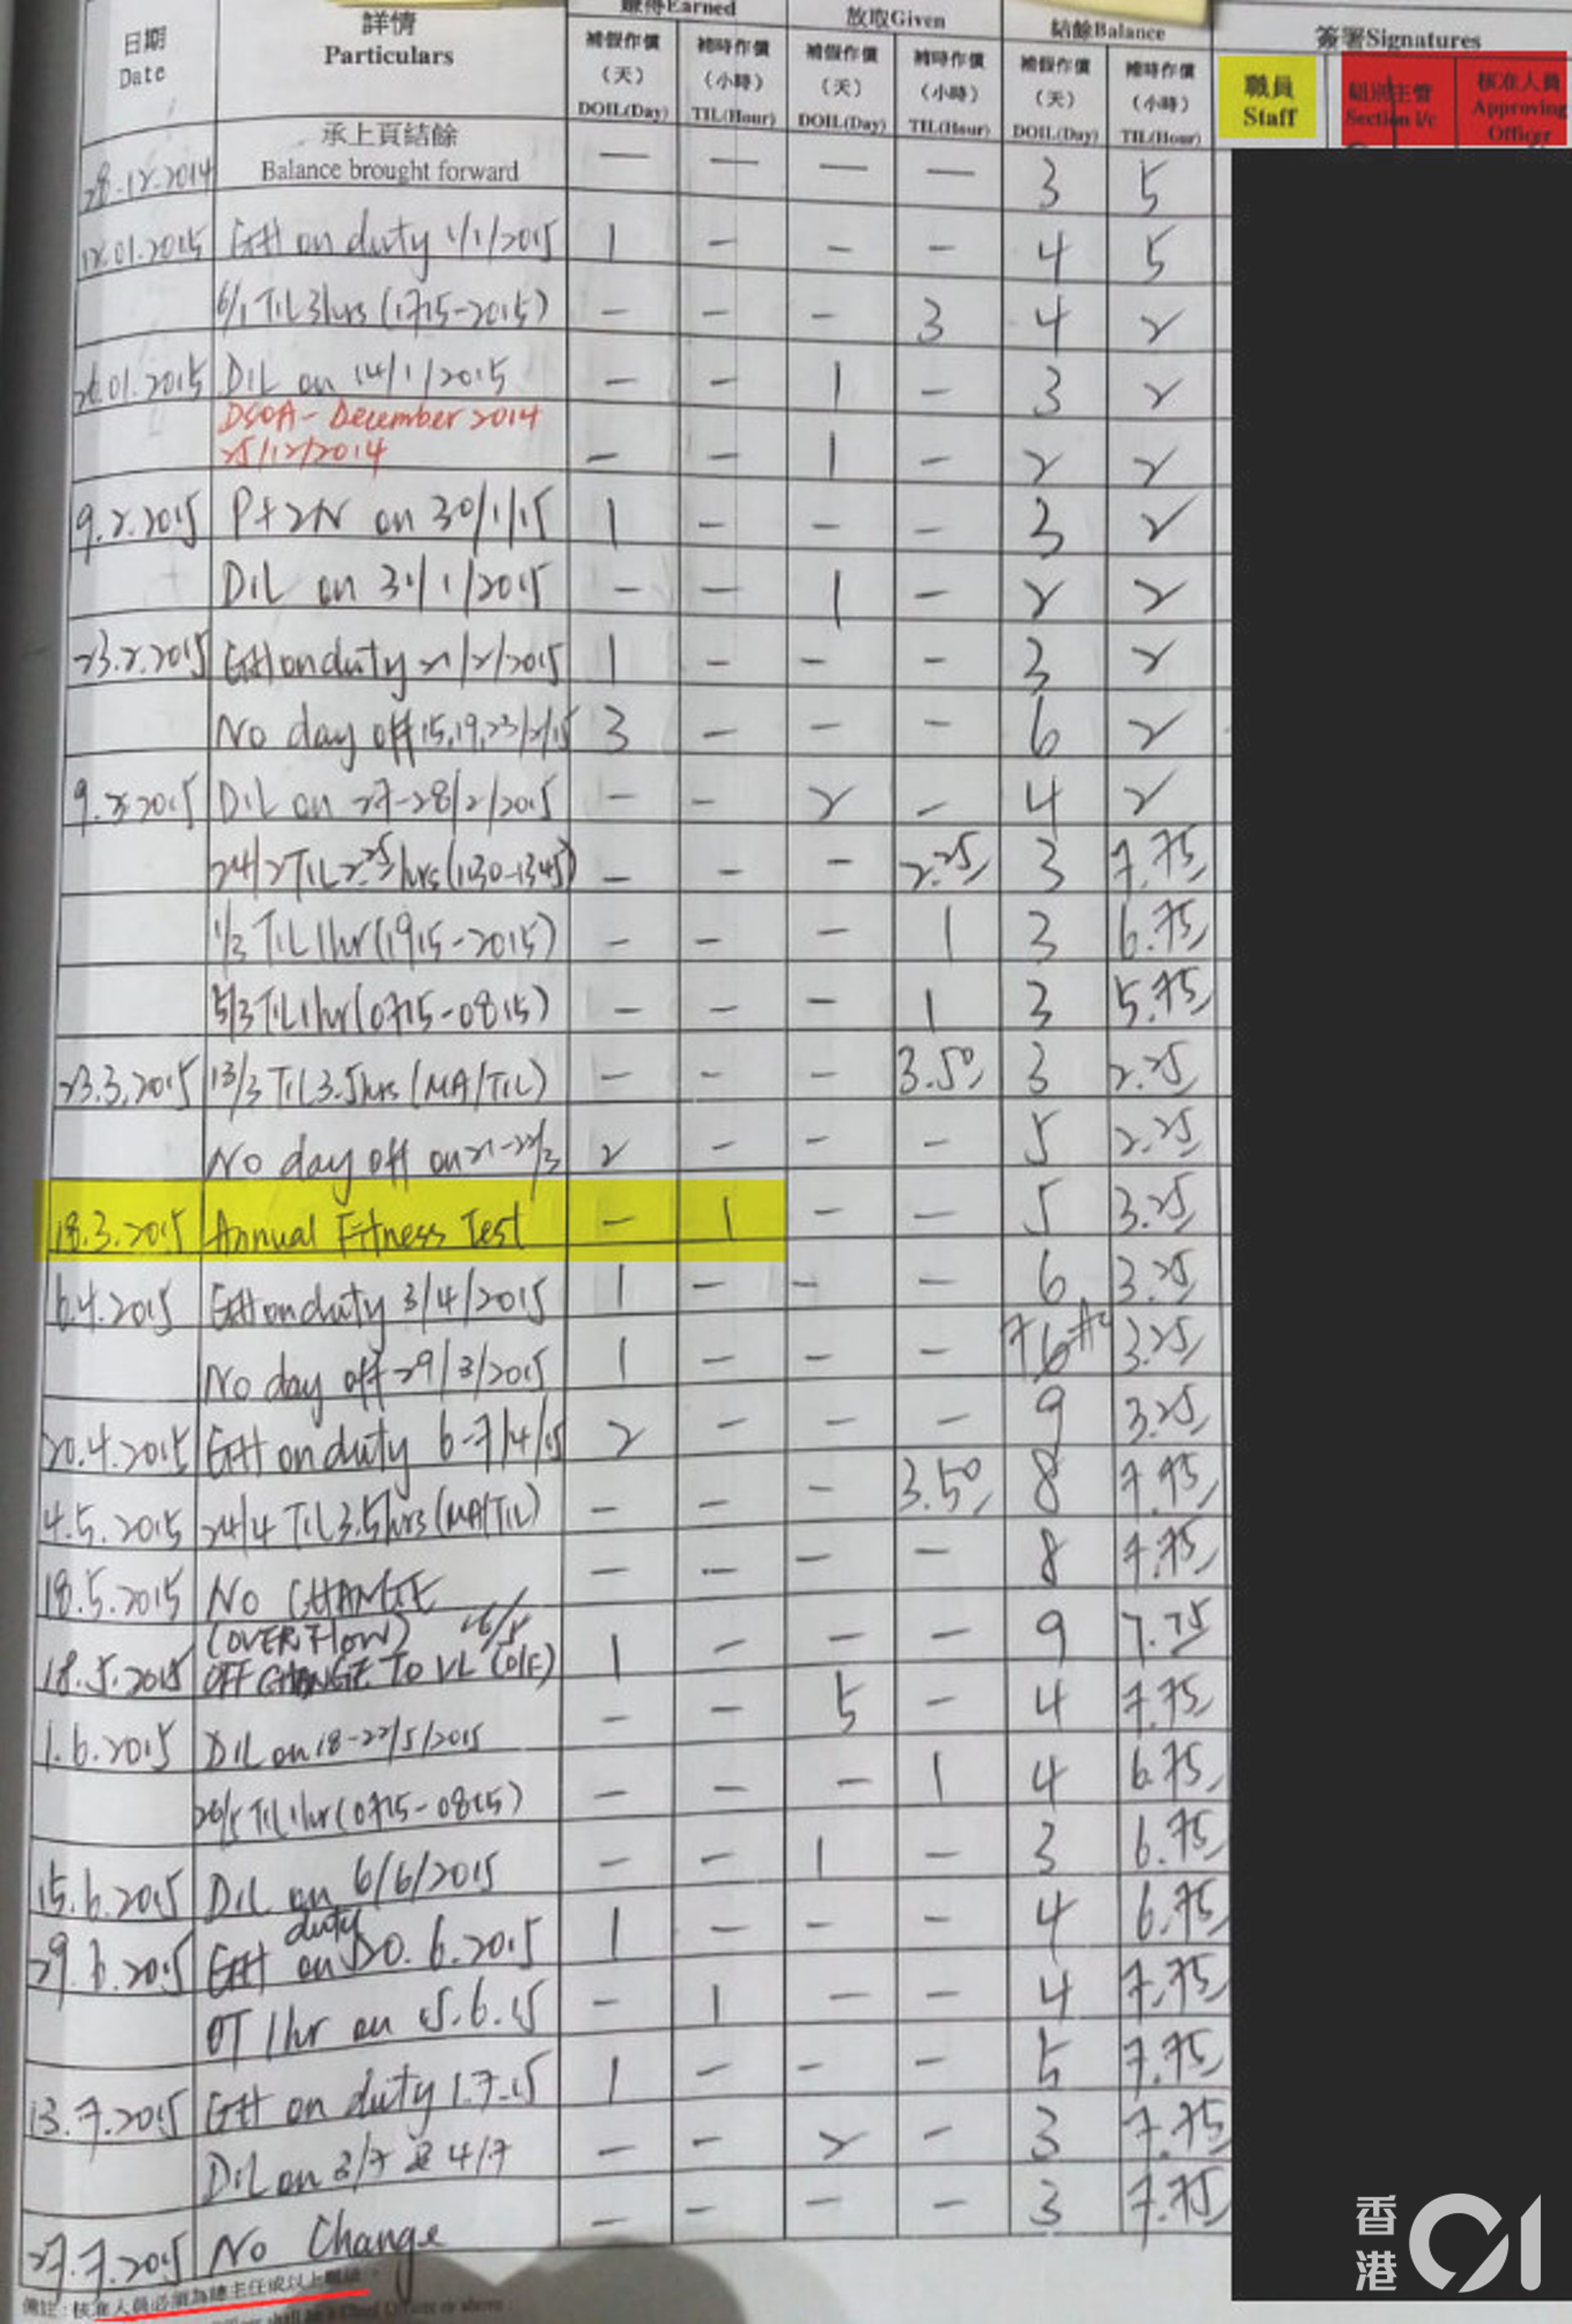 賺得Earned 放取Given 結餘Balance 簽署Signatures
日期 Date 詳情 Particulars 補假作償 (天) DOIL(Day) 補時作償 (小時) TIL(Hour) 補假作償 (天) DOIL(Day) 補時作償 (小時) TIL(Hour) 補假作償 (天) DOIL(Day) 補時作償 (小時) TIL(Hour) 職員 Staff 組別主管 Section i/c 核准人員 Approving Officer
28.12.2014 承上頁結餘 Balance brought forward — — — — 3 5
12.01.2015 GH on duty 1/1/2015 1 - - - 4 5
6/1 TIL 3hrs (1715-2015) - - - 3 4 2
26.01.2015 DIL on 14/1/2015 - - 1 - 3 2
DSOA - December 2014
25/12/2014 - - 1 - 2 2
9.2.2015 P+2N on 30/1/15 1 - - - 3 2
DIL on 31/1/2015 - - 1 - 2 2
23.2.2015 GH on duty 21/2/2015 1 - - - 3 2
No day off 15,19,23/2/15 3 - - - 6 2
9.3.2015 DIL on 27-28/2/2015 - - 2 - 4 2
24/2 TIL 2.25hrs (1130-1345) - - - 2.25 3 7.75
1/3 TIL 1hr (1915-2015) - - - 1 3 6.75
5/3 TIL 1hr (0715-0815) - - - 1 3 5.75
23.3.2015 13/3 TIL 3.5hrs (MA/TIL) - - - 3.50 3 2.25
No day off on 21-22/3 2 - - - 5 2.25
18.3.2015 Annual Fitness Test - 1 - - 5 3.25
6.4.2015 GH on duty 3/4/2015 1 - - - 6 3.25
No day off 29/3/2015 1 - - - 7 6 3.25
20.4.2015 GH on duty 6-7/4/15 2 - - - 9 3.25
4.5.2015 24/4 TIL 3.5hrs (MA/TIL) - - - 3.50 8 7.75
18.5.2015 NO CHANGE - - - - 8 7.75
(OVER FLOW)
18.5.2015 OFF CHANGE TO VL (O/F) 1 - - - 9 7.75
1.6.2015 DIL on 18-22/5/2015 - - 5 - 4 7.75
TIL 1hr (0715-0815) - - - 1 4 6.75
15.6.2015 DIL on 6/6/2015 - - 1 - 3 6.75
29.6.2015 GH duty on 20.6.2015 1 - - - 4 6.75
OT 1hr on 15.6.15 - 1 - - 4 7.75
13.7.2015 GH on duty 1.7.15 1 - - - 5 7.75
DIL on 3/7 & 4/7 - - 2 - 3 7.75
27.7.2015 No Change - - - - 3 7.75
備註：核准人員必須為總主任或以上職級
香港01